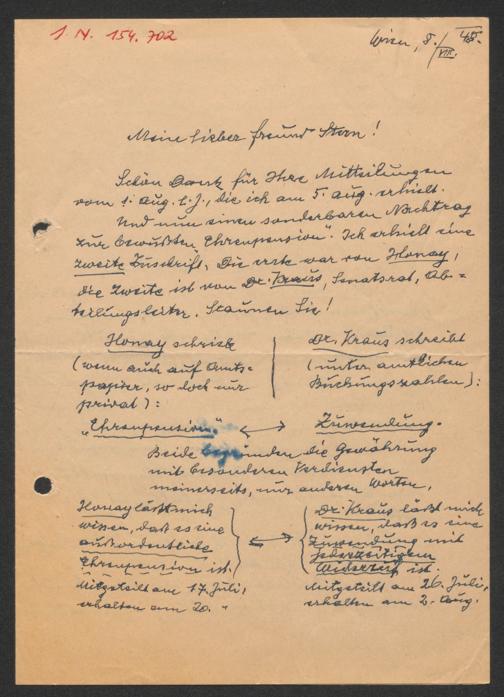 J. N. 154.702
Wien, 8./VIII. 48.
Mein lieber Freund Stern!
Schön Dank für Ihre Mitteilungen
vom 1. Aug. l. J., die ich am 5. Aug. erhielt.
Und nun einen sonderbaren Nachtrag
zur bewußten „Ehrenpension". Ich erhielt eine
zweite Zuschrift. Die erste war von Honay,
die zweite ist von Dr. Kraus, Senatsrat, Ab=
teilungsleiter. Staunen Sie!
Honay schrieb
(wenn auch auf Amts-
papier, so doch nur
privat):
„Ehrenpension."
Dr. Kraus schreibt
(unter amtlichen
Buchungszahlen):
Zuwendung.
Beide begründen die Gewährung
mit besonderen Verdiensten
meinerseits, nur anderen Worten,
Honay läßt mich
wissen, daß es eine
außerordentliche
Ehrenpension ist.
Mitgeteilt am 17. Juli,
erhalten am 20. "
Dr. Kraus läßt mich
wissen, daß es eine
Zuwendung mit
jederzeitigem
Widerruf ist.
Mitgeteilt am 26. Juli,
erhalten am 2. Aug.